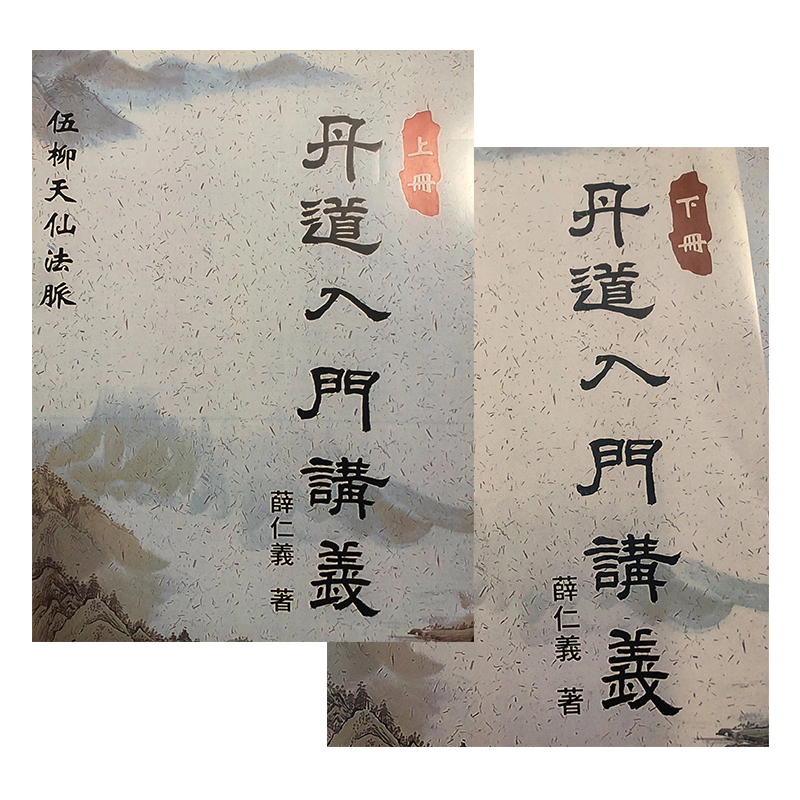 上冊
丹道入門講義
薛仁義 著
伍柳天仙法脈
下冊
丹道入門講義
薛仁義 著